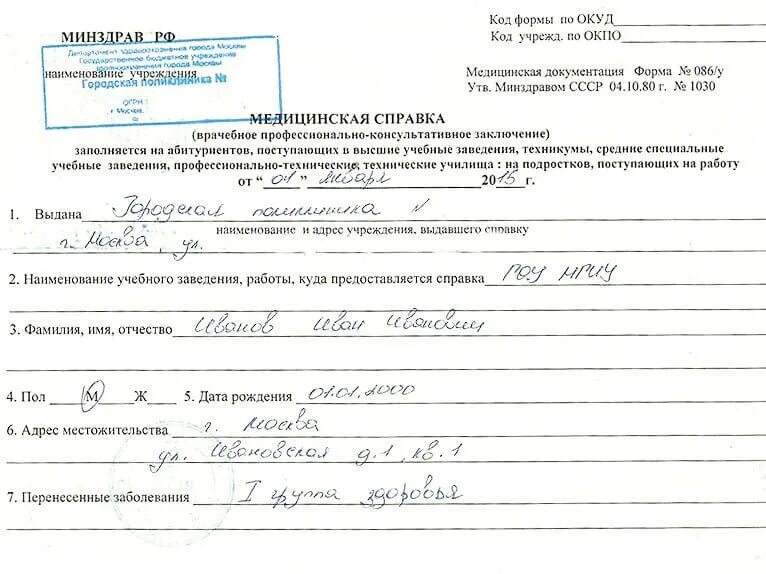 Код формы по ОКУД
Код учрежд. по ОКПО
МИНЗДРАВ РФ
Департамент здравоохранения города Москвы
Государственное бюджетное учреждение
здравоохранения города Москвы
наименование учреждения
Городская поликлиника №
ОГРН
г. Москва,
Медицинская документация Форма № 086/у
Утв. Минздравом СССР 04.10.80 г. № 1030
МЕДИЦИНСКАЯ СПРАВКА
(врачебное профессионально-консультативное заключение)
заполняется на абитуриентов, поступающих в высшие учебные заведения, техникумы, средние специальные
учебные заведения, профессионально-технические, технические училища : на подростков, поступающих на работу
от “ 01 ” января 2015 г.
1. Выдана Городская поликлиника №
наименование и адрес учреждения, выдавшего справку
г. Москва, ул.
2. Наименование учебного заведения, работы, куда предоставляется справка ГОУ МГИУ
3. Фамилия, имя, отчество Иванов Иван Иванович
4. Пол М Ж 5. Дата рождения 01.01.2000
6. Адрес местожительства г. Москва
ул. Ивановская д.1, кв.1
7. Перенесенные заболевания I группа здоровья